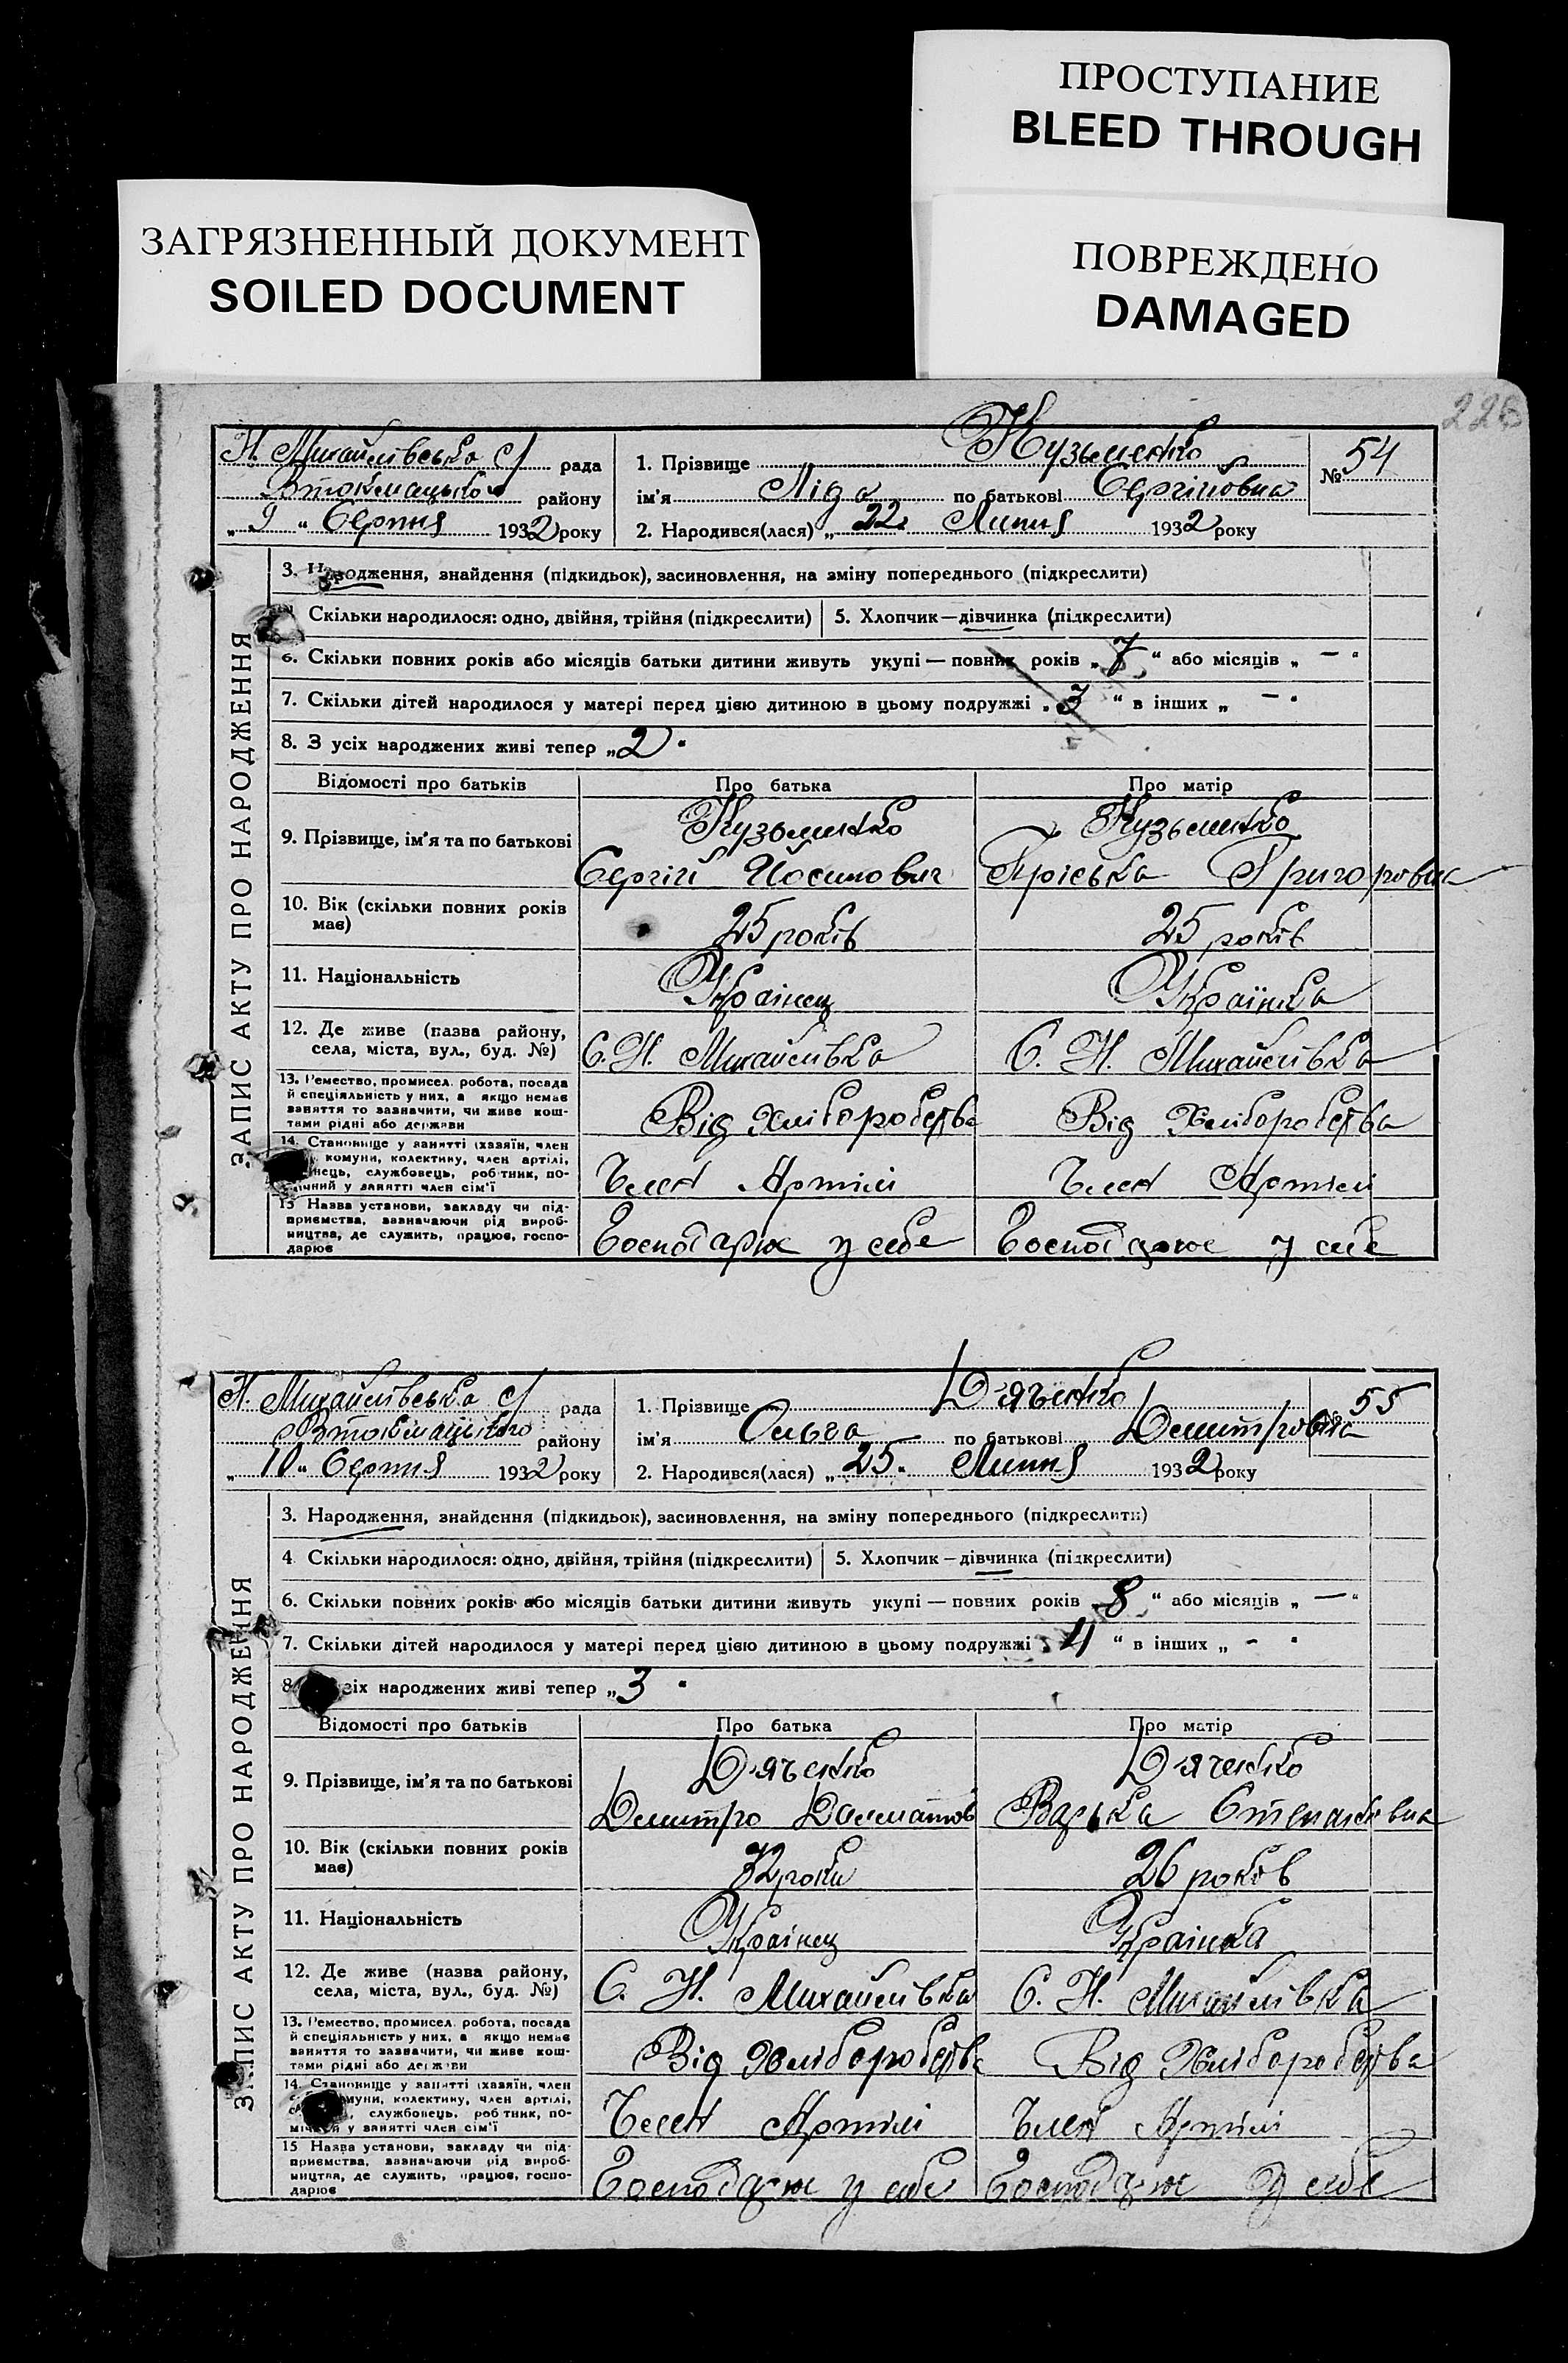 ПРОСТУПАНИЕ
BLEED THROUGH
ЗАГРЯЗНЕННЫЙ ДОКУМЕНТ
SOILED DOCUMENT
ПОВРЕЖДЕНО
DAMAGED
226
Н. Михайлівська с/ рада
Втокмацьког району
„ 9 “ Серпня 1932 року
1. Прізвище Кузьменко
ім'я Ліда по батькові Сергіювна
2. Народився(лася) „ 22 Липня 1932 року
№ 54
ЗАПИС АКТУ ПРО НАРОДЖЕННЯ
3. Народження, знайдення (підкидьок), засиновлення, на зміну попереднього (підкреслити)
Скільки народилося: одно, двійня, трійня (підкреслити) 5. Хлопчик — дівчинка (підкреслити)
6. Скільки повних років або місяців батьки дитини живуть укупі — повних років „ 7 “ або місяців „ — “
7. Скільки дітей народилося у матері перед цією дитиною в цьому подружжі „ 3 “ в інших „ — “
8. З усіх народжених живі тепер „ 2 “
Відомості про батьків Про батька Про матір
9. Прізвище, ім'я та по батькові Кузьменко Кузьменко
Сергій Йосипович Пріська Григоровна
10. Вік (скільки повних років має) 25 років 25 років
11. Національність Українец Українка
12. Де живе (назва району, села, міста, вул., буд. №) С. Н. Михайлівка С. Н. Михайлівка
13. Ремество, промисел, робота, посада
й спеціяльність у них, а якщо немає
заняття то зазначити, чи живе кош-
тами рідні або держави
Від Хліборобства Від Хліборобства
14. Становище у занятті (хазяїн, член
комуни, колективу, член артілі,
службовець, робітник, по-
мічний у занятті член сім'ї
Член Артілі Член Артілі
15 Назва установи, закладу чи під-
приємства, зазначаючи рід вироб-
ництва, де служить, працює, госпо-
дарює
Господарює у себе Господарює у себе
Н. Михайлівська с/ рада
Втокмацького району
„ 10 “ Серпня 1932 року
1. Прізвище Дяченко
ім'я Ольга по батькові Демитровна
2. Народився(лася) „ 25 “ Липня 1932 року
№ 55
ЗАПИС АКТУ ПРО НАРОДЖЕННЯ
3. Народження, знайдення (підкидьок), засиновлення, на зміну попереднього (підкреслити)
4. Скільки народилося: одно, двійня, трійня (підкреслити) 5. Хлопчик — дівчинка (підкреслити)
6. Скільки повних років або місяців батьки дитини живуть укупі — повних років „ 8 “ або місяців „ — “
7. Скільки дітей народилося у матері перед цією дитиною в цьому подружжі „ 4 “ в інших „ - “
8. усіх народжених живі тепер „ 3 “
Відомості про батьків Про батька Про матір
9. Прізвище, ім'я та по батькові Дяченко Дяченко
Демитро Варька Степановна
10. Вік (скільки повних років має) 32 роки 26 років
11. Національність Українец Українка
12. Де живе (назва району, села, міста, вул., буд. №) С. Н. Михайлівка С. Н. Михайлівка
13. Ремество, промисел, робота, посада
й спеціяльність у них, а якщо немає
заняття то зазначити, чи живе кош-
тами рідні або держави
Від Хліборобства Від Хліборобства
14. Становище у занятті (хазяїн, член
комуни, колективу, член артілі,
службовець, робітник, по-
мічний у занятті член сім'ї
Член Артілі Член Артілі
15 Назва установи, закладу чи під-
приємства, зазначаючи рід вироб-
ництва, де служить, працює, госпо-
дарює
Господарює у себе Господарює у себе